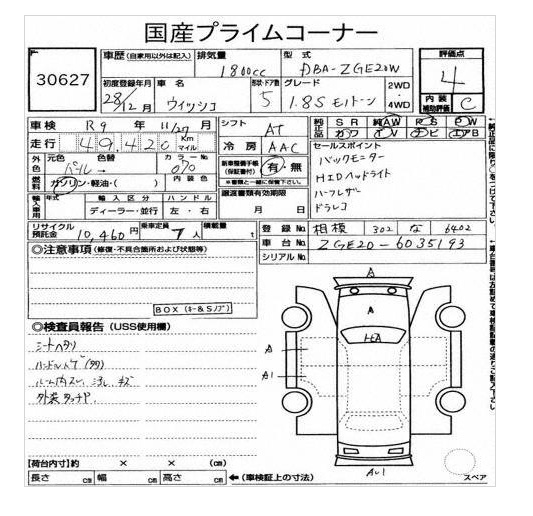 国産プライムコーナー
30627
車歴 (自家用以外は記入) 排気量 1800cc 型式 DBA-ZGE20W
評価点 4
内装補助評価 C
初度登録年月 28/12月 車名 ウィッシュ 形状・ドア数 5 グレード 1.8S モノトーン 2WD ・ 4WD
車検 R9年 11/27月 シフト AT
走行 49,420 Km マイル 冷房 AAC
純正品 SR 純AW PS PW
カワ TV ナビ エアB
外色 元色 パール 色替 カラーNo. 070
燃料 ガソリン・軽油・( ) 内装色
新車整備手帳 (保証書付) 有・無
※書類と一緒に保管下さい。
セールスポイント
バックモニター
HIDヘッドライト
ハーフレザー
ドラレコ
輸入車用 年式 輸入区分 ハンドル
ディーラー・並行 左・右
譲渡書類有効期限 月 日
リサイクル預託金 10,460円 乗車定員 7人 積載量 t
登録No. 相模 302 な 6402
車台No. ZGE20-6035193
シリアルNo.
◎注意事項 (修復・不具合箇所および状態等)
BOX (キー&Sノブ)
◎検査員報告 (USS使用欄)
シートヘタリ
外装タッチP.
A
A
A1
【荷台内寸】約 × × (cm)
長さ cm 幅 cm 高さ cm ←(車検証上の寸法)
スペア